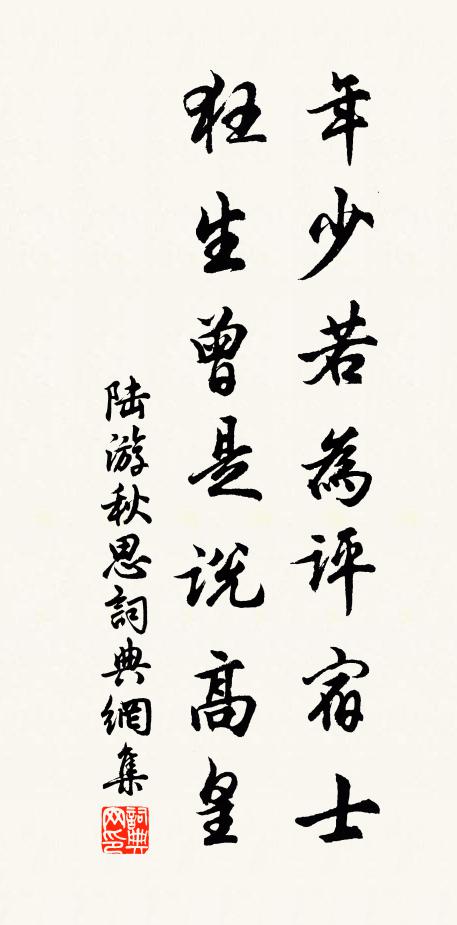 年少若為評宿士
狂生曾是説高皇
陆游秋思詞典網集
詞典网印